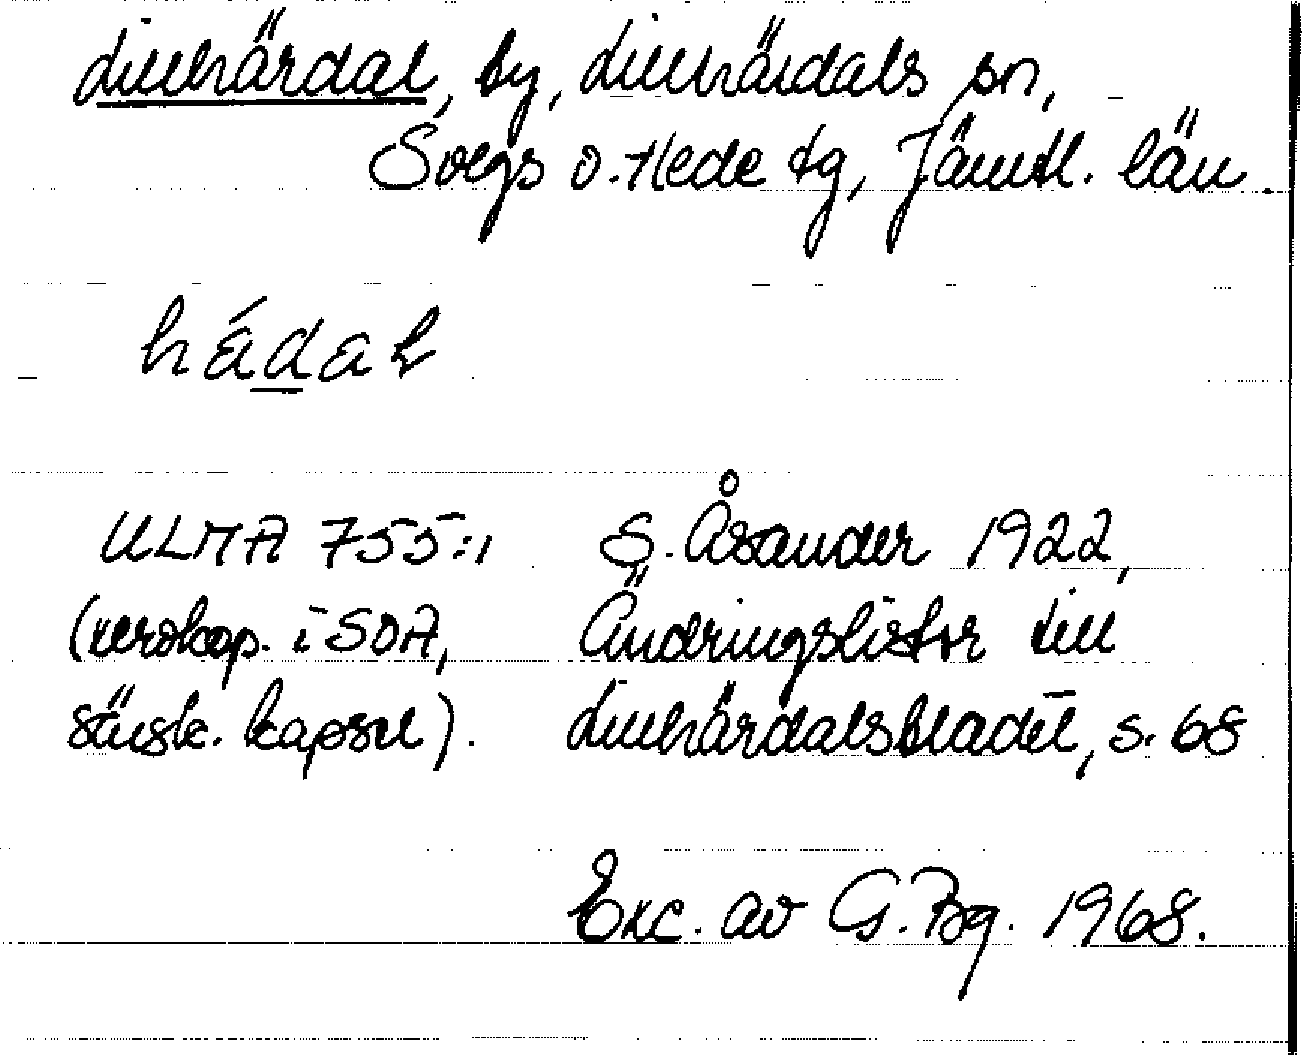 Lillhärdal, by, Lillhärdals sn,
Svegs o. Hede tg, Jämtl. län.
hádaɫ
ULMA 755:1 S. Åsander 1922,
(xerokop. i SOA, Ändringslistor till
särsk. kapsel). Lillhärdalsbladet, s. 68
Exc. av G. Bg. 1968.